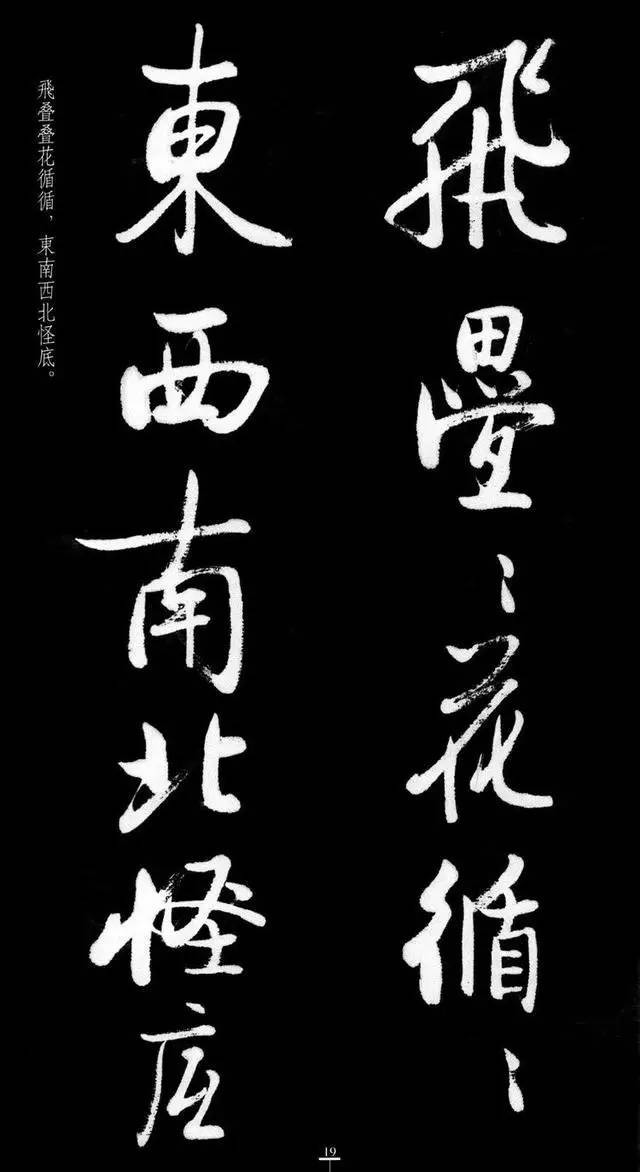 飛疊〻花循〻
東西南北怪底
飛叠叠花循循，東南西北怪底。
19